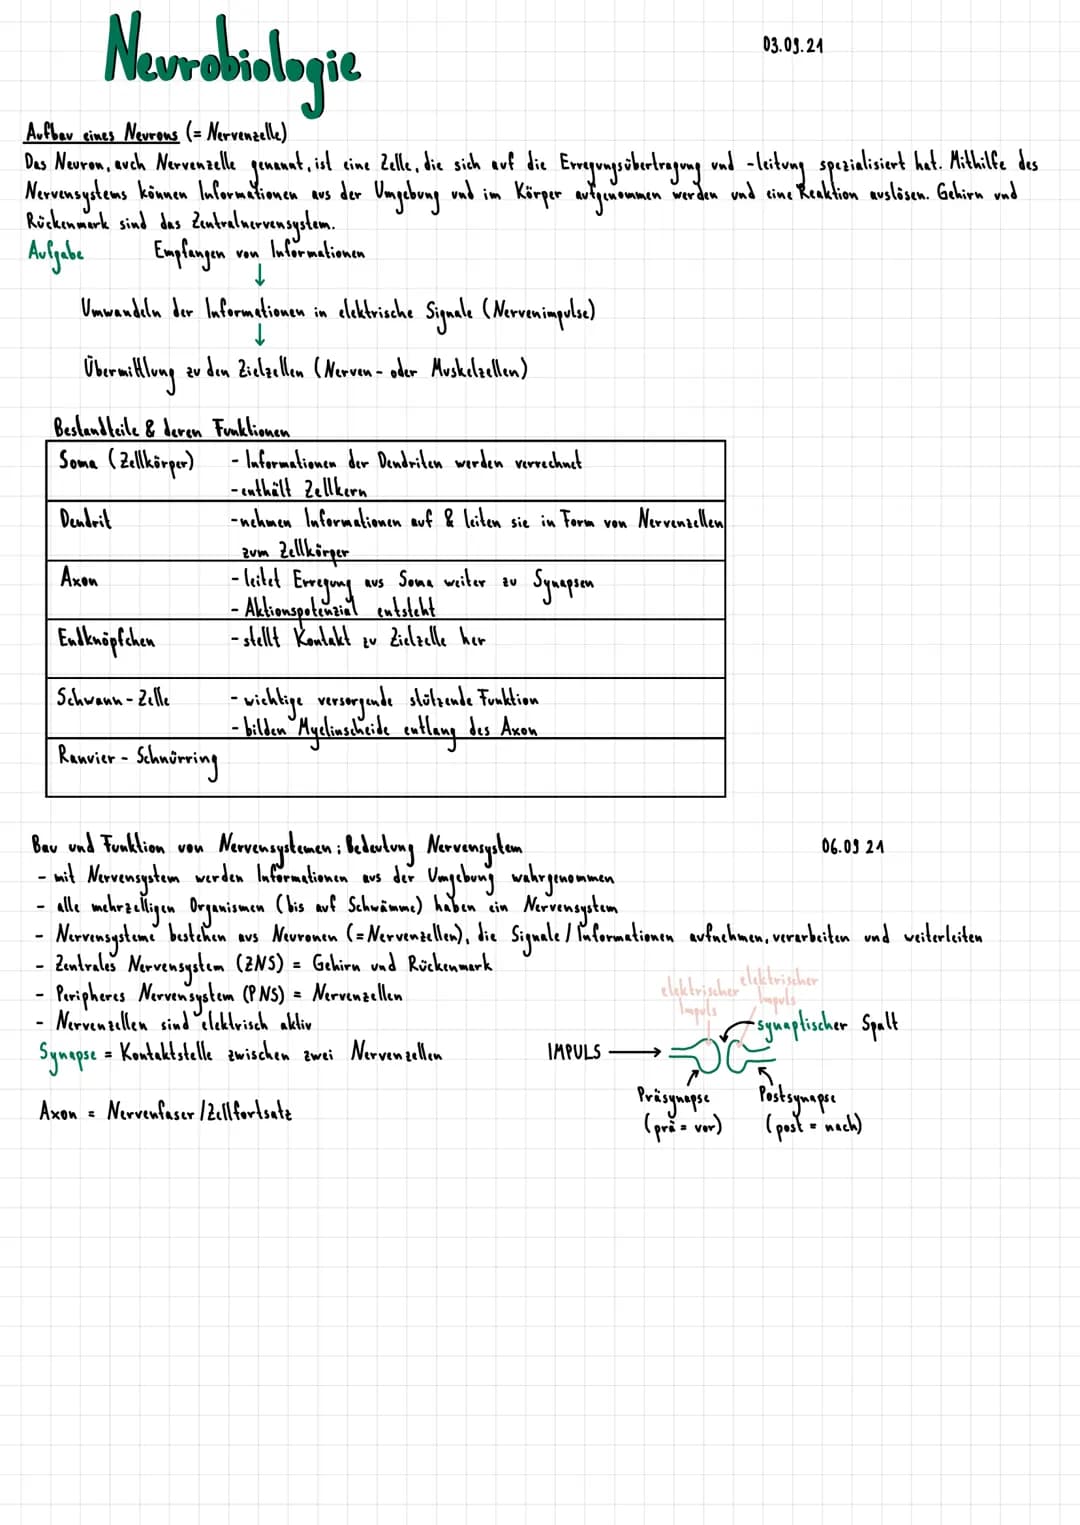 Neurobiologie
03.09.21
Aufbau eines Neurons (= Nervenzelle)
Das Neuron, auch Nervenzelle genannt, ist eine Zelle, die sich auf die Erregungsübertragung und -leitung spezialisiert hat. Mithilfe des
Nervensystems können Informationen aus der Umgebung und im Körper aufgenommen werden und eine Reaktion auslösen. Gehirn und
Rückenmark sind das Zentralnervensystem.
Aufgabe Empfangen von Informationen
↓
Umwandeln der Informationen in elektrische Signale (Nervenimpulse)
↓
Übermittlung zu den Zielzellen (Nerven- oder Muskelzellen)
Bestandteile & deren Funktionen
Soma (Zellkörper) - Informationen der Dendriten werden verrechnet
- enthält Zellkern
Dendrit - nehmen Informationen auf & leiten sie in Form von Nervenzellen
zum Zellkörper
Axon - leitet Erregung aus Soma weiter zu Synapsen
- Aktionspotenzial entsteht
Endknöpfchen - stellt Kontakt zu Zielzelle her
Schwann-Zelle - wichtige versorgende stützende Funktion
- bilden Myelinscheide entlang des Axon
Ranvier-Schnürring
Bau und Funktion von Nervensystemen; Bedeutung Nervensystem
06.09.21
- mit Nervensystem werden Informationen aus der Umgebung wahrgenommen
- alle mehrzelligen Organismen (bis auf Schwämme) haben ein Nervensystem
- Nervensysteme bestehen aus Neuronen (=Nervenzellen), die Signale/Informationen aufnehmen, verarbeiten und weiterleiten
- Zentrales Nervensystem (ZNS) = Gehirn und Rückenmark
- Peripheres Nervensystem (PNS) = Nervenzellen
- Nervenzellen sind elektrisch aktiv
Synapse = Kontaktstelle zwischen zwei Nervenzellen
Axon = Nervenfaser/Zellfortsatz
elektrischer Impuls
elektrischer Impuls
synaptischer Spalt
IMPULS →
Präsynapse
(prä = vor)
Postsynapse
(post = nach)